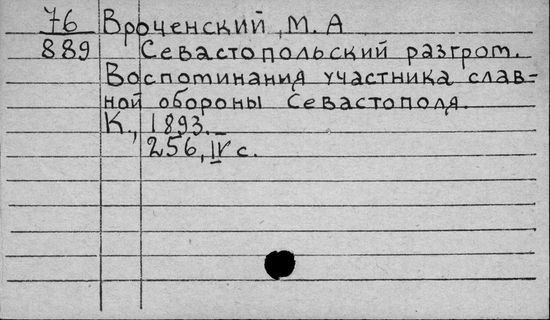 76 Вроченский, М. А
889 Севастопольский разгром.
Воспоминания участника слав-
ной обороны Севастополя.
К., 1893.
256, IV с.